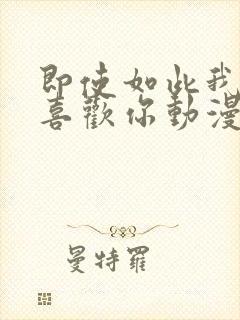 即使如此我
喜歡你動漫
曼特羅